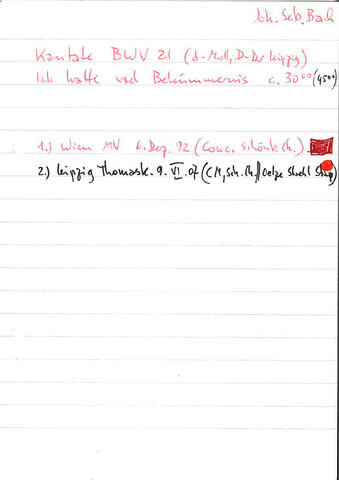 Joh. Seb. Bach
Kantate BWV 21 (d-Moll, D-Dur Leipzig)
Ich hatte viel Bekümmernis c. 30°° (45°°)
1.) Wien MV 6. Dez. 92 (Conc. Schönb. Ch.)
2.) Leipzig Thomask. 9. VI. 07 (CM, Sch. Ch, // Oelze